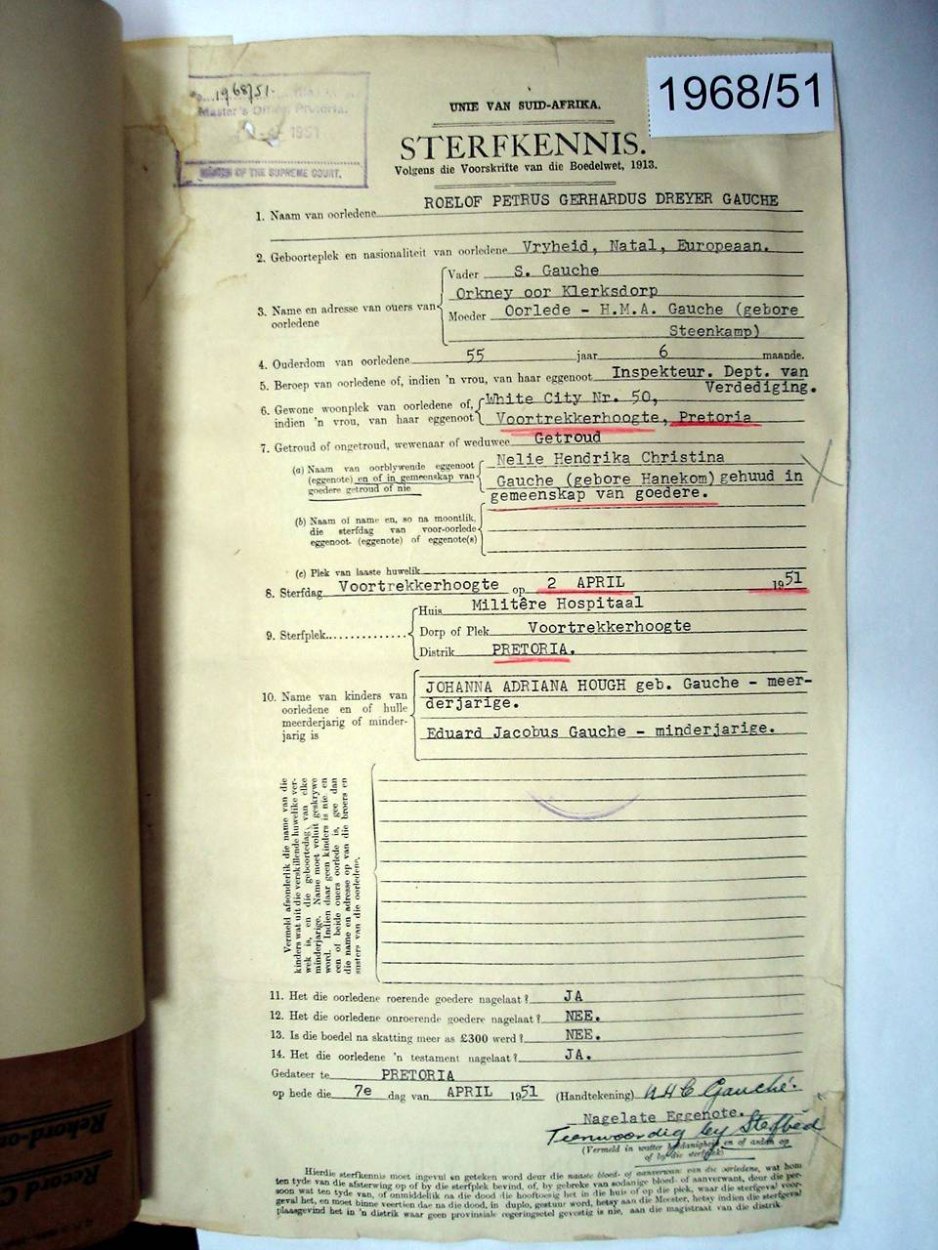 1968/51
1968/51.
Master's Office, Pretoria.
1951
MASTER OF THE SUPREME COURT.
UNIE VAN SUID-AFRIKA.
STERFKENNIS.
Volgens die Voorskrifte van die Boedelwet, 1913.
1. Naam van oorledene ROELOF PETRUS GERHARDUS DREYER GAUCHE
2. Geboorteplek en nasionaliteit van oorledene Vryheid, Natal, Europeaan.
3. Name en adresse van ouers van oorledene
Vader S. Gauche
Orkney oor Klerksdorp
Moeder Oorlede - H.M.A. Gauche (gebore
Steenkamp)
4. Ouderdom van oorledene 55 jaar 6 maande.
5. Beroep van oorledene of, indien 'n vrou, van haar eggenoot Inspekteur. Dept. van
Verdediging.
6. Gewone woonplek van oorledene of, White City Nr. 50,
indien 'n vrou, van haar eggenoot Voortrekkerhoogte, Pretoria
7. Getroud of ongetroud, wewenaar of weduwee Getroud
(a) Naam van oorblywende eggenoot Nelie Hendrika Christina
(eggenote) en of in gemeenskap van Gauche (gebore Hanekom) gehuud in
goedere getroud of nie gemeenskap van goedere.
(b) Naam of name en, so na moontlik,
die sterfdag van voor-oorlede
eggenoot (eggenote) of eggenote(s)
(c) Plek van laaste huwelik
8. Sterfdag Voortrekkerhoogte op 2 APRIL 1951
9. Sterfplek
Huis Militêre Hospitaal
Dorp of Plek Voortrekkerhoogte
Distrik PRETORIA.
10. Name van kinders van JOHANNA ADRIANA HOUGH geb. Gauche - meer-
oorledene en of hulle derjarige.
meerderjarig of minder-
jarig is Eduard Jacobus Gauche - minderjarige.
Vermeld afsonderlik die name van die
kinders wat uit die verskillende huwelike ver-
wek is, en die geboortedag, van elke
minderjarige. Name moet voluit geskrywe
word. Indien daar geen kinders is nie en
een of beide ouers oorlede is, gee dan
die name en adresse op van die broers en
susters van die oorledene.
11. Het die oorledene roerende goedere nagelaat? JA
12. Het die oorledene onroerende goedere nagelaat? NEE.
13. Is die boedel na skatting meer as £300 werd? NEE.
14. Het die oorledene 'n testament nagelaat? JA.
Gedateer te PRETORIA
op hede die 7e dag van APRIL 1951 (Handtekening) N H C Gauché.
Nagelate Eggenote.
Teenwoordig by Sterfbed
(Vermeld in watter hoedanigheid en of anders op
of by die sterfplek)
Hierdie sterfkennis moet ingevul en geteken word deur die naaste bloed- of aanverwant van die oorledene, wat hom
ten tyde van die afsterwing op of by die sterfplek bevind, of, by gebreke van sodanige bloed- of aanverwant, deur die per-
soon wat ten tyde van, of onmiddelik na die dood die hooftoesig het in die huis of op die plek, waar die sterfgeval voor-
geval het, en moet binne veertien dae na die dood, in duplo, gestuur word, hetsy aan die Meester, hetsy indien die sterfgeval
plaasgevind het in 'n distrik waar geen provinsiale regeringsetel gevestig is nie, aan die magistraat van die distrik
Rekord-o
Record C